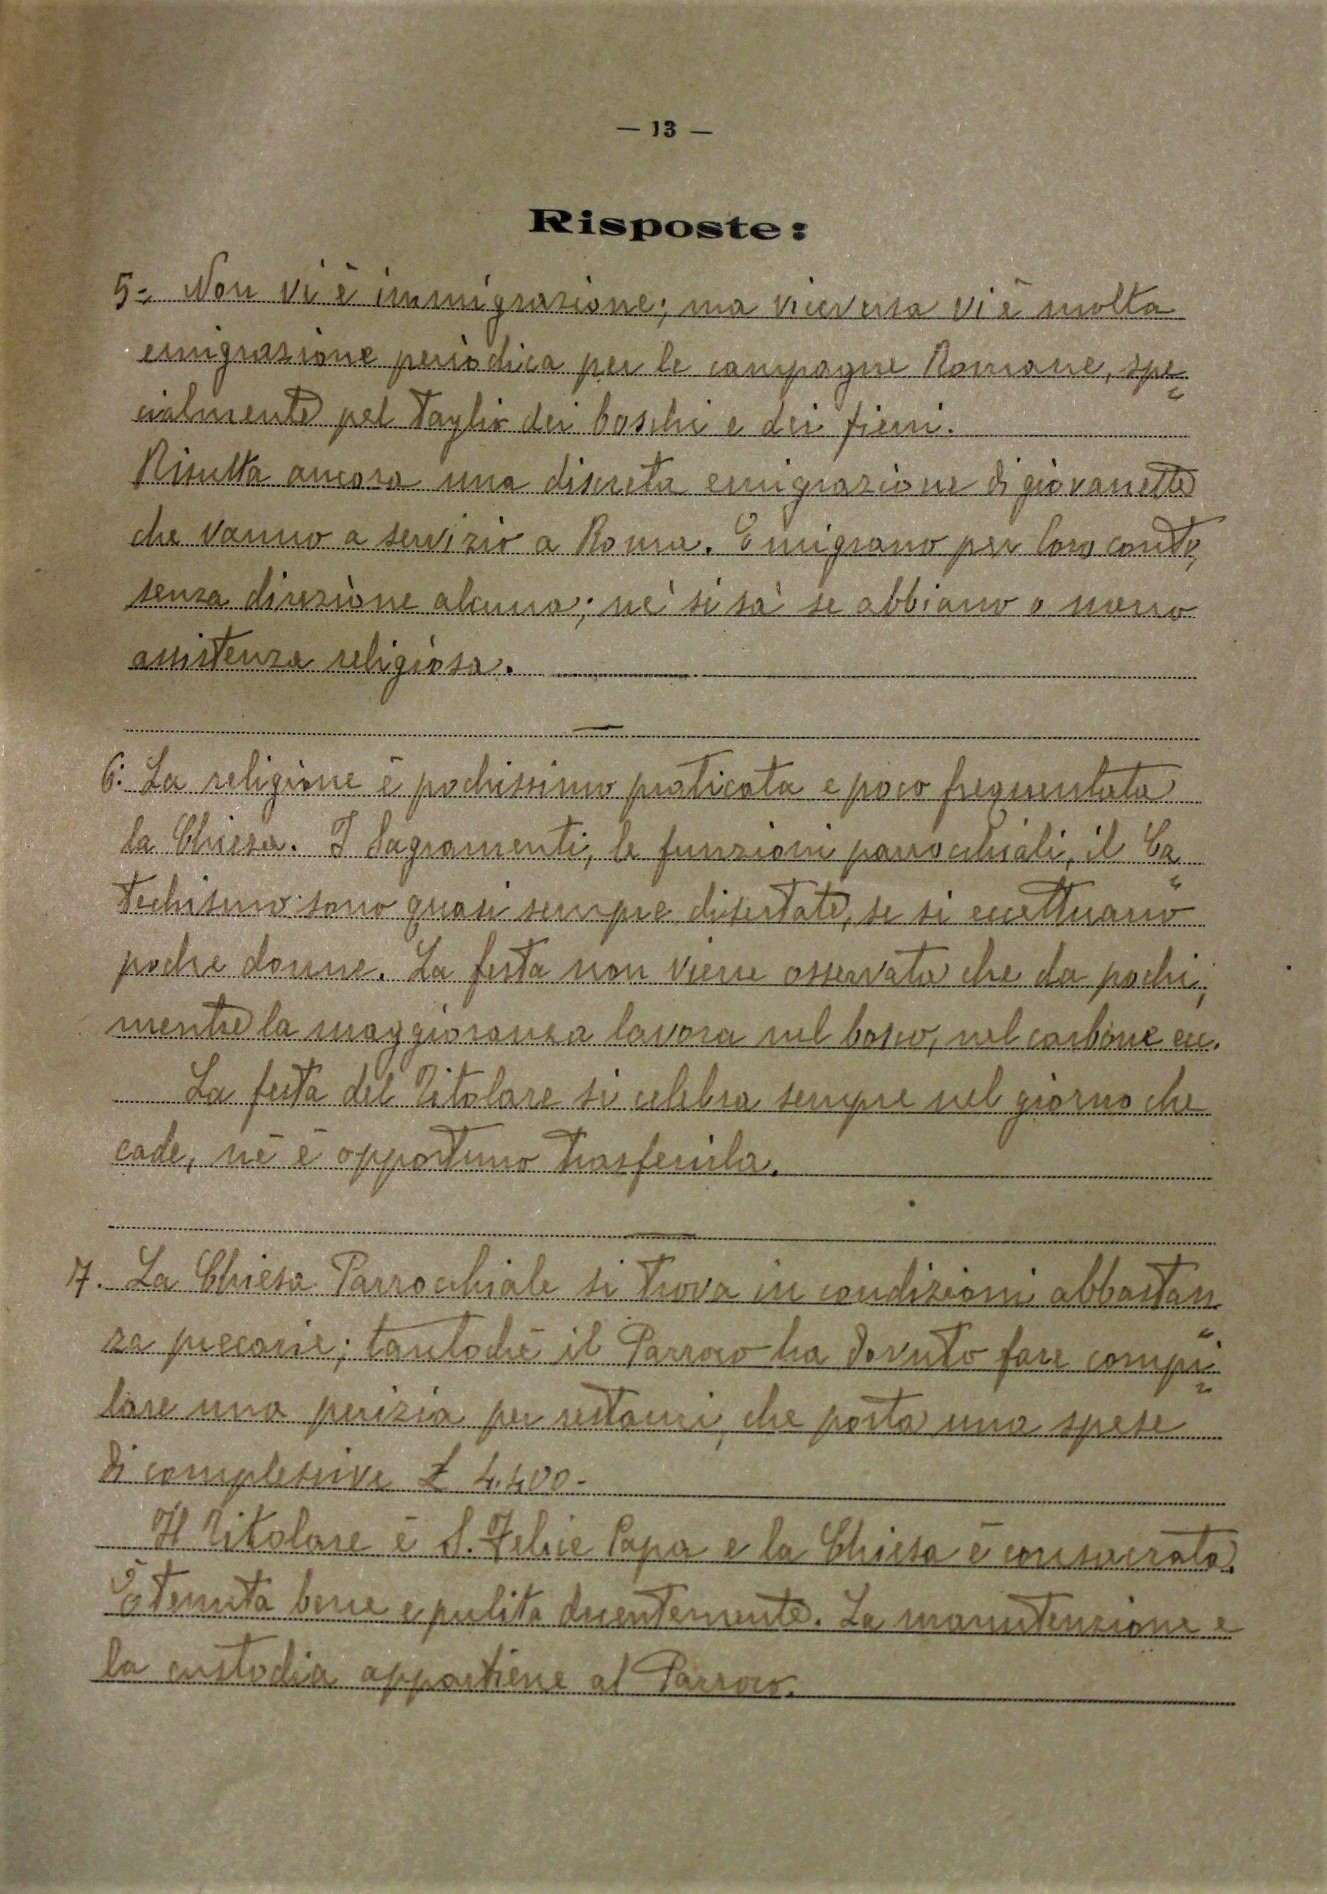 — 13 —
Risposte:
5-. Non vi è immigrazione; ma viceversa vi è molta
emigrazione periodica per le campagne Romane, spe=
cialmente pel taglio dei boschi e dei fieni.
Risulta ancora una discreta emigrazione di giovanette
che vanno a servizio a Roma. Emigrano per loro conto,
senza direzione alcuna; nè si sà se abbiano o meno
assistenza religiosa.
—
6. La religione è pochissimo praticata e poco frequentata
la Chiesa. I Sagramenti, le funzioni parrocchiali, il Ca=
techismo sono quasi sempre disertate, se si eccettuano
poche donne. La festa non viene osservata che da pochi,
mentre la maggioranza lavora nel bosco, nel carbone ecc.
La festa del Titolare si celebra sempre nel giorno che
cade, nè è opportuno trasferirla.
—
7. La Chiesa Parrocchiale si trova in condizioni abbastan=
za precarie; tantochè il Parroco ha dovuto fare compi=
lare una perizia per restauri, che porta una spese
di complessive £ 4.400-
Il Titolare è S. Felice Papa e la Chiesa è consacrata.
È tenuta bene e pulita decentemente. La manutenzione e
la custodia appartiene al Parroco.